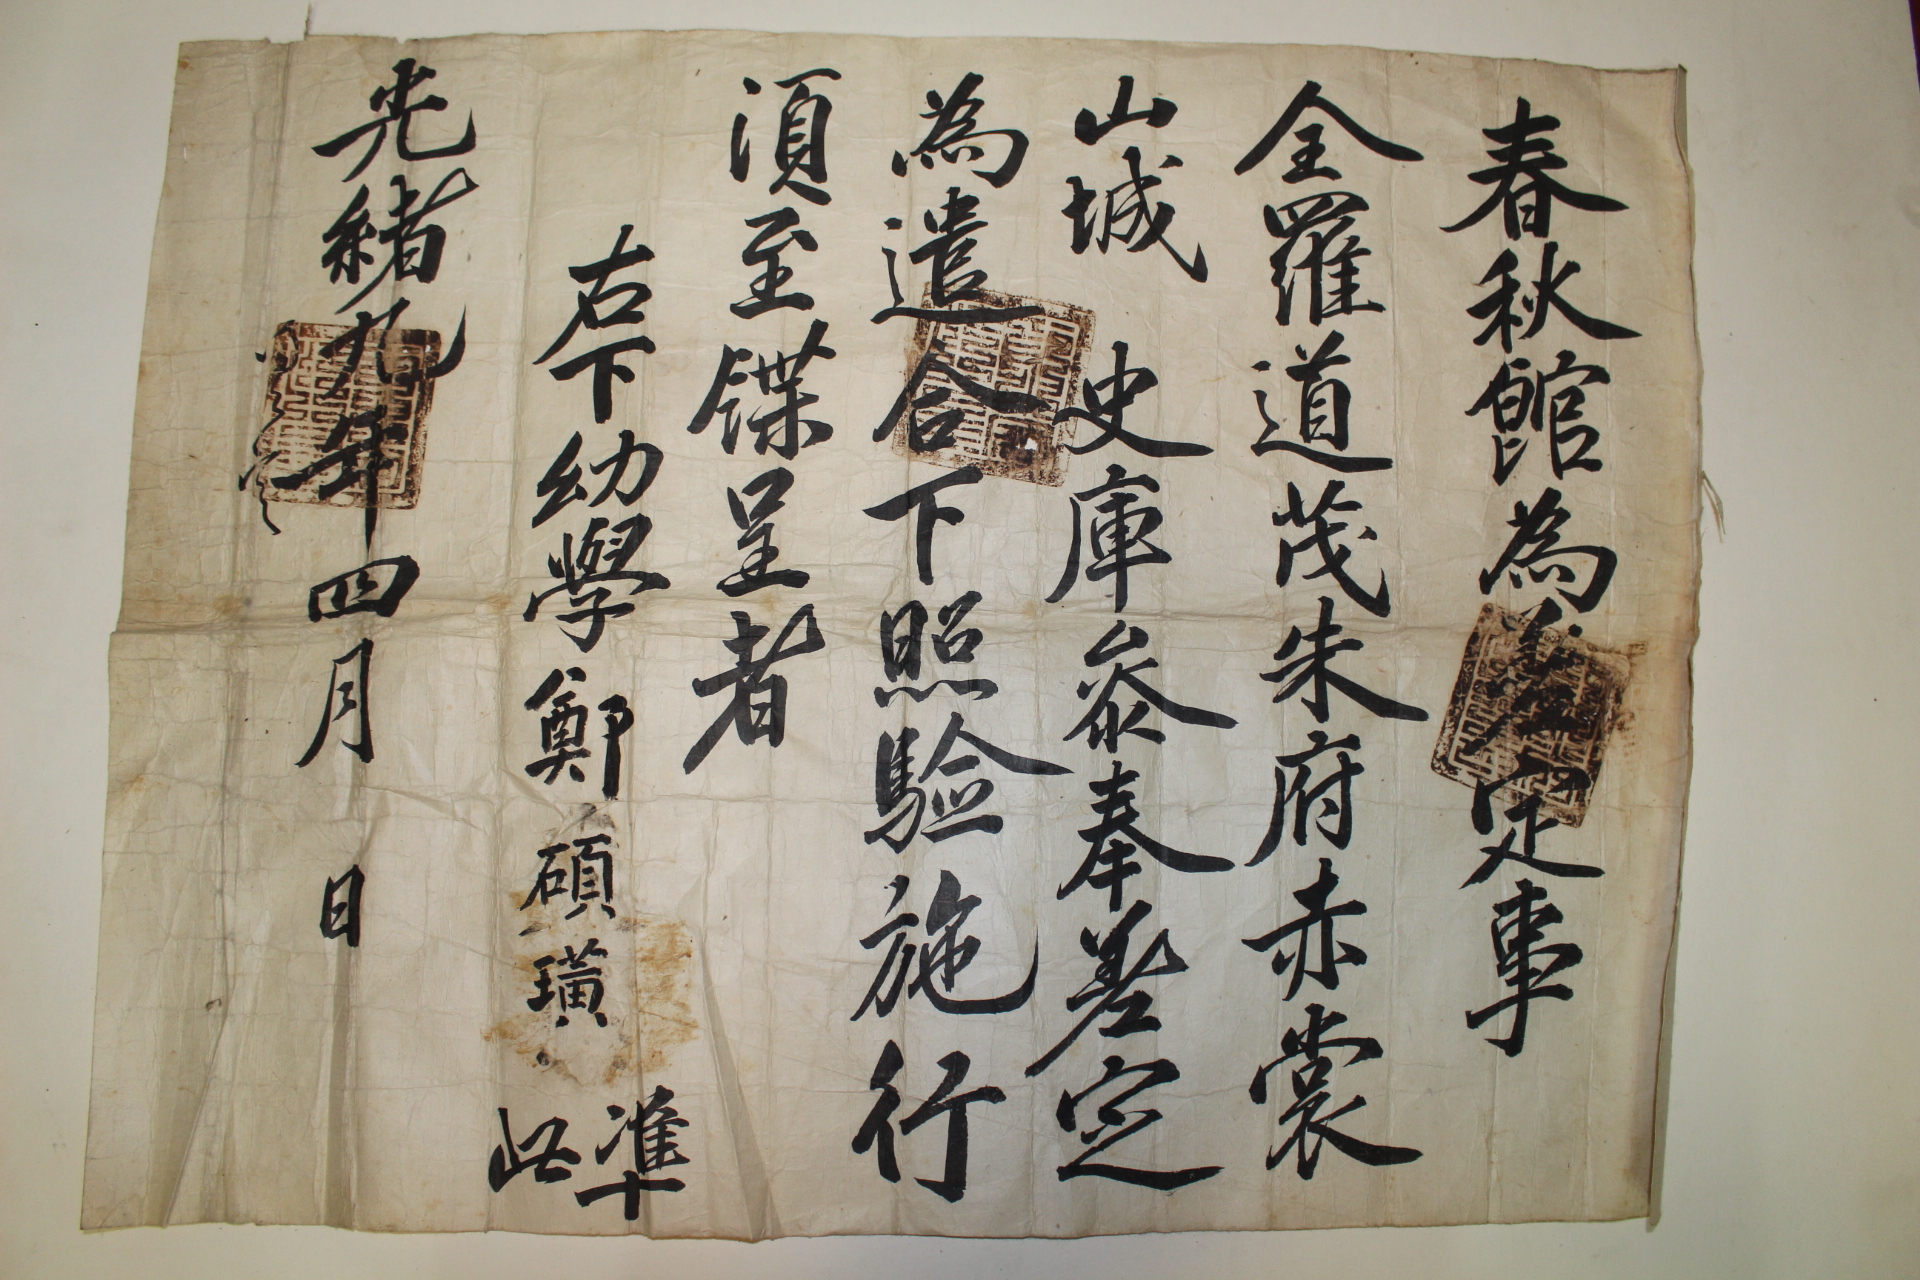 春秋館為差定事
全羅道茂朱府赤裳
山城 史庫叅奉差定
為遣合下照驗施行
須至牒呈者
右下幼學鄭碩璜 準此
光緒九年四月 日